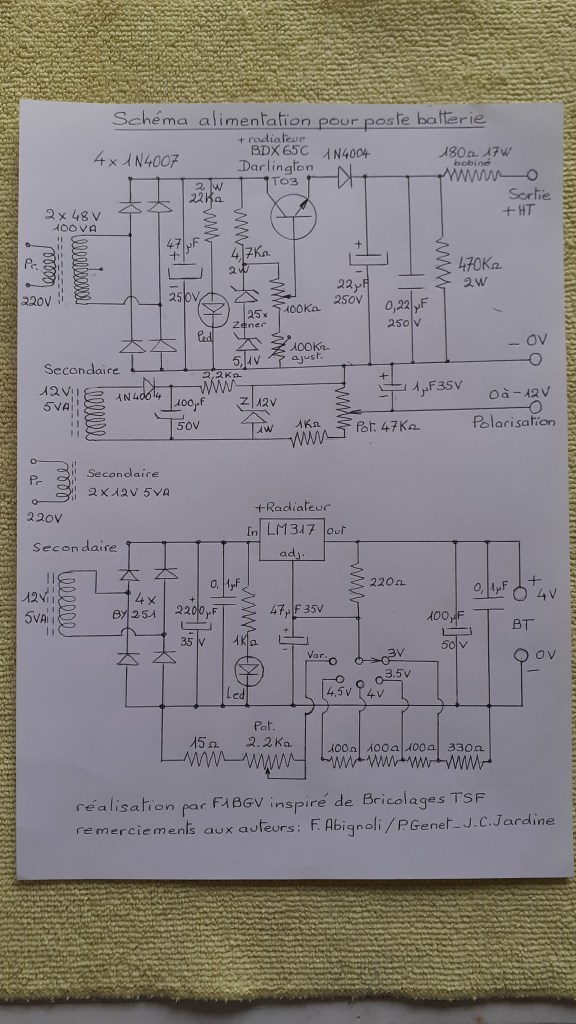 Schéma alimentation pour poste batterie
+ radiateur
BDX 65C
Darlington
TO3
4 x 1N4007
1N4004
180Ω 17W
bobiné
Sortie
+ HT
2 W
22KΩ
2 x 48V
100VA
Pr.
220V
47µF
+
-
250V
Led
4,7KΩ
2W
25x
Zener
5,1V
100KΩ
100KΩ
ajust.
+
22µF
250V
0,22µF
250V
470KΩ
2W
- 0V
Secondaire
12V
5VA
1N4004
2,2KΩ
100µF
50V
Z 12V
1W
1KΩ
Pot. 47KΩ
+
-
1µF35V
0à-12V
Polarisation
Pr
220V
Secondaire
2X12V 5VA
+Radiateur
In LM317 Out
adj.
Secondaire
12V
5VA
4x
BY 251
+
2200µF
-
35V
0,1µF
1KΩ
Led
47µF 35V
+
-
220Ω
100µF
50V
0,1µF
+
4V
BT
0V
-
Var.
3V
3.5V
4V
4,5V
Pot.
15Ω
2.2KΩ
100Ω
100Ω
100Ω
330Ω
réalisation par F1BGV inspiré de Bricolages TSF
remerciements aux auteurs: F. Abignoli / P.Genet_J.C.Jardine